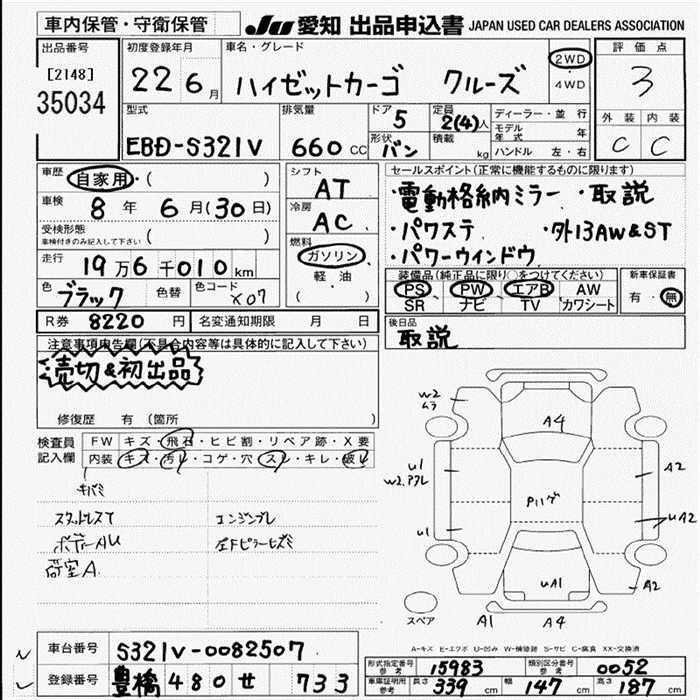 車内保管・守衛保管 JU 愛知 出品申込書 JAPAN USED CAR DEALERS ASSOCIATION
出品番号 [2148] 35034
初度登録年月 22 6月
車名・グレード ハイゼットカーゴ クルーズ 2WD 4WD
評価点 3
外装 C 内装 C
型式 EBD-S321V
排気量 660 CC
ドア 5 形状 バン
定員 2(4)人 積載 kg
ディーラー・並行
モデル年式 年
ハンドル 左・右
車歴 自家用・( )
車検 8年 6月(30日)
受検形態 車検付きのみ記入して下さい ( )
走行 19万6千010km
色 ブラック 色替 色コード X07
シフト AT
冷房 AC
燃料 ガソリン・軽油
セールスポイント(正常に機能するものに限ります)
・電動格納ミラー ・取説
・パワステ ・外13AW&ST
・パワーウインドウ
装備品(純正品に限り○をつけてください)
PS PW エアB AW
SR ナビ TV カワシート
新車保証書 有・無
R券 8220円 名変通知期限 月 日
後日品 取説
注意事項申告欄(不具合内容等は具体的に記入して下さい)
売切&初出品
修復歴 有 (箇所 )
検査員記入欄 FW キズ・飛石・ヒビ割・リペア跡・X要
内装 キズ・汚レ・コゲ・穴・スレ・キレ・破レ
キバミ
スタッドレスT エンジンブレ
ボデーAU 左Fピラーヒズミ
荷室A
W2ムラ A4
U1 W2.アフレ A2
Pハゲ
U1 UA2
UA1 A2
スペア A1 A4
A-キズ E-エクボ U-凹み W-補修跡 S-サビ C-腐食 XX-交換済
車台番号 S321V-0082507
登録番号 豊橋 480 せ 733
形式指定番号 参考 15983 類別区分番号 参考 0052
車庫証明用 参考 長さ 339 cm 幅 147 cm 高さ 187 cm